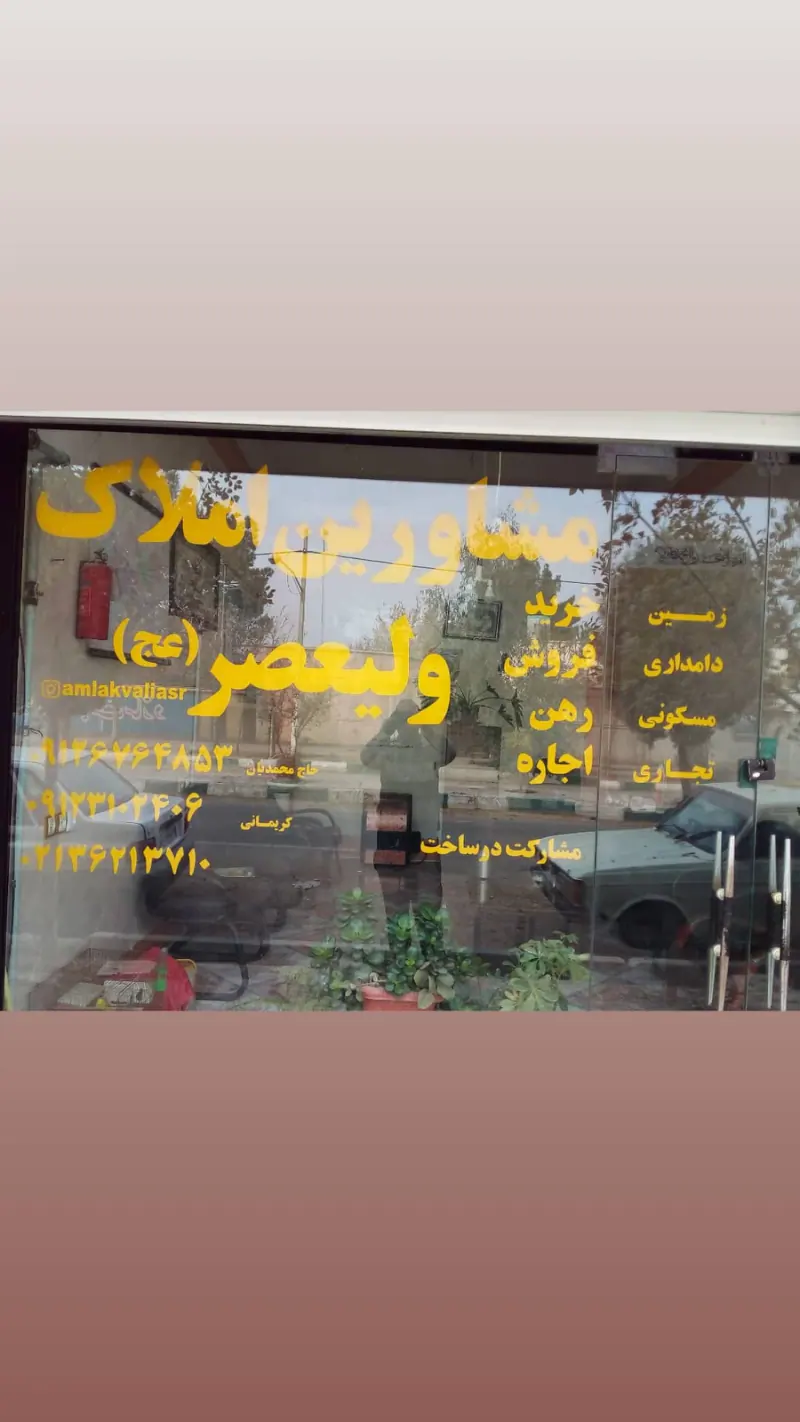 مشاورین املاک
ولیعصر (عج)
خرید
فروش
رهن
اجاره
زمین
دامداری
مسکونی
تجاری
مشارکت درساخت
amlakvaliasr
حاج محمدیان ۰۹۱۲۶۷۶۴۸۵۳
کریمانی ۰۹۱۲۳۱۰۲۴۰۶
۰۲۱۳۶۲۱۳۷۱۰